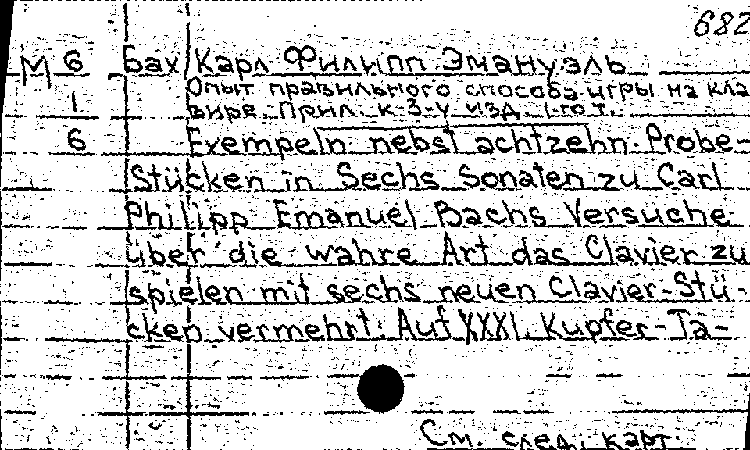 682
М 6 Бах, Карл Филипп Эмануэль
Опыт правильного способа игры на кла
1 вире. Прил. к 3-у изд. 1-го т.
6 Exempeln nebst achtzehn Probe-
Stücken in Sechs Sonaten zu Carl
Philipp Emanuel Bachs Versuche
über die wahre Art das Clavier zu
spielen mit sechs neuen Clavier-Stü-
cken vermehrt. Auf XXXI. Kupfer-Ta-
См. след. карт.